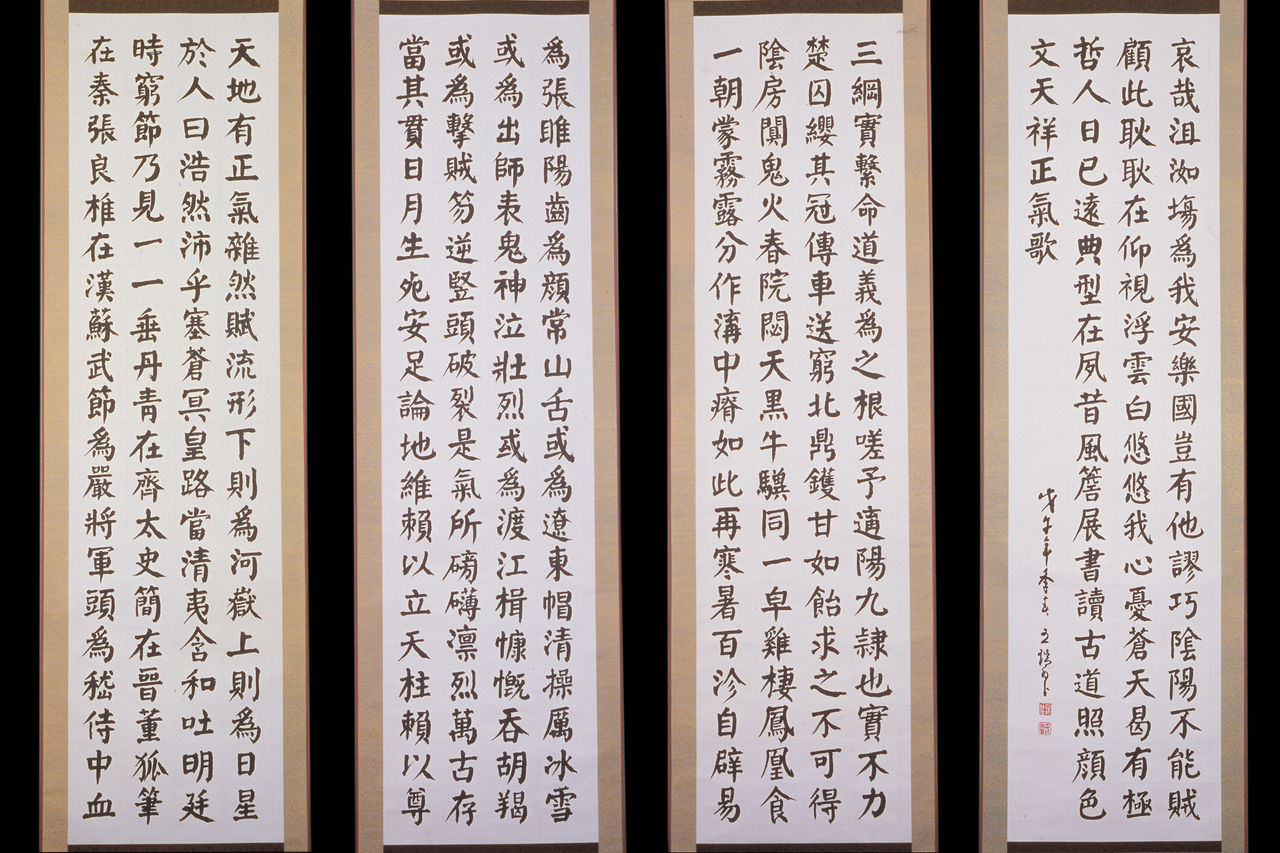 天地有正氣雜然賦流形下則為河嶽上則為日星
於人曰浩然沛乎塞蒼冥皇路當清夷含和吐明廷
時窮節乃見一一垂丹青在齊太史簡在晉董狐筆
在秦張良椎在漢蘇武節為嚴將軍頭為嵇侍中血
為張睢陽齒為顏常山舌或為遼東帽清操厲冰雪
或為出師表鬼神泣壯烈或為渡江楫慷慨吞胡羯
或為擊賊笏逆豎頭破裂是氣所磅礴凜烈萬古存
當其貫日月生死安足論地維賴以立天柱賴以尊
三綱實繫命道義為之根嗟予遘陽九隸也實不力
楚囚纓其冠傳車送窮北鼎鑊甘如飴求之不可得
陰房闃鬼火春院閟天黑牛驥同一皁雞棲鳳凰食
一朝蒙霧露分作溝中瘠如此再寒暑百沴自辟易
哀哉沮洳場為我安樂國豈有他謬巧陰陽不能賊
顧此耿耿在仰視浮雲白悠悠我心憂蒼天曷有極
哲人日已遠典型在夙昔風簷展書讀古道照顏色
文天祥正氣歌
戊午年季春